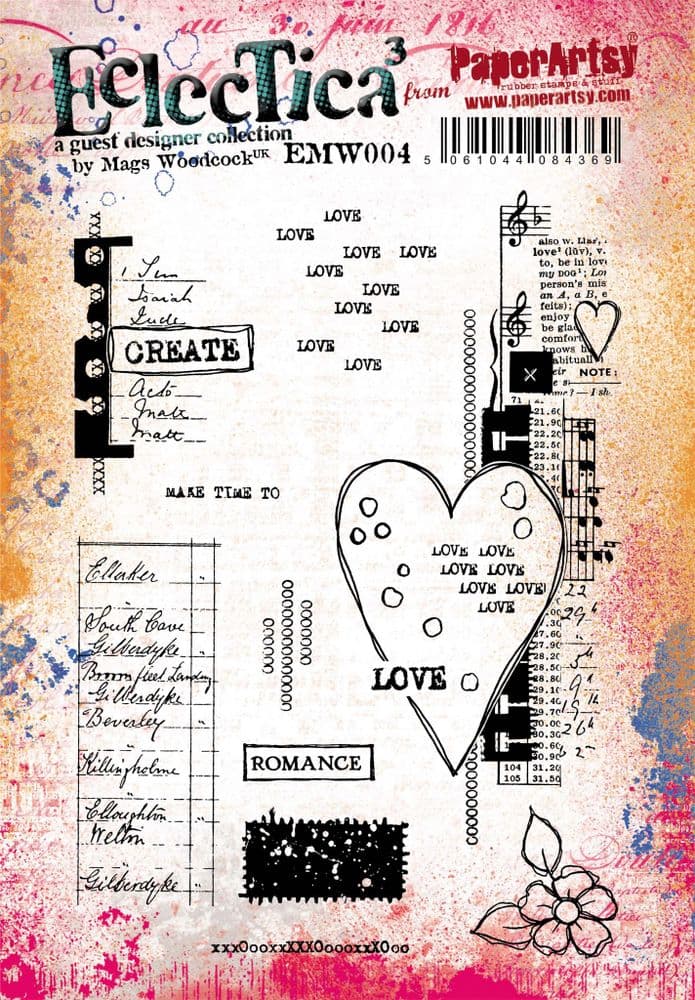 au 30 juin 1816
EclecTica³
from
PaperArtsy
rubber stamps & stuff
www.paperartsy.com
a guest designer collection
by Mags Woodcock UK
EMW004
5 061044 084369
LOVE
LOVE
LOVE LOVE
LOVE
LOVE
LOVE
LOVE
LOVE
LOVE
Isaiah
CREATE
Acts
Mark
Matt
MAKE TIME TO
also w. Liaf,
love² (lŭv), v.
to, be in love
my DOG¹; Lo
person's mis
an A, a B, e
feits);
enjoy
be glad
comfort
knows h
abituall
eir
NOTE:
71
21.60
21.90
22.20
22.50
22.80
23.10
LOVE LOVE
LOVE LOVE
LOVE LOVE
LOVE
LOVE
22
27.60
27.90
28.20
28.50
28.80
29.10
29.40
29.70
30.00
30.30
30.60
30.90
104 31.20
105 31.50
Ellerker
South Cave
Gilberdyke
Broomfleet Landing
Gilberdyke
Beverley
Killingholme
Elloughton
Welton
Gilberdyke
ROMANCE
xxxOooxxXXXOoooxxXOoo